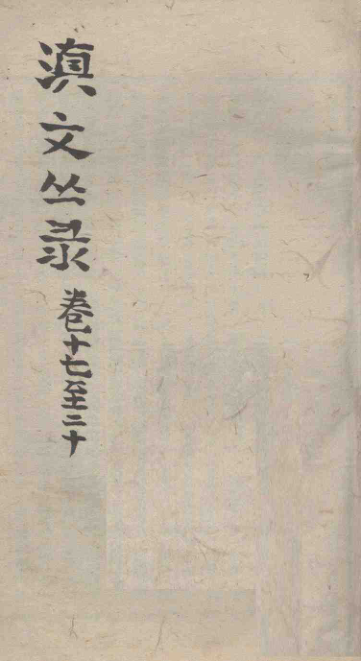 滇文丛录
卷十七至二十